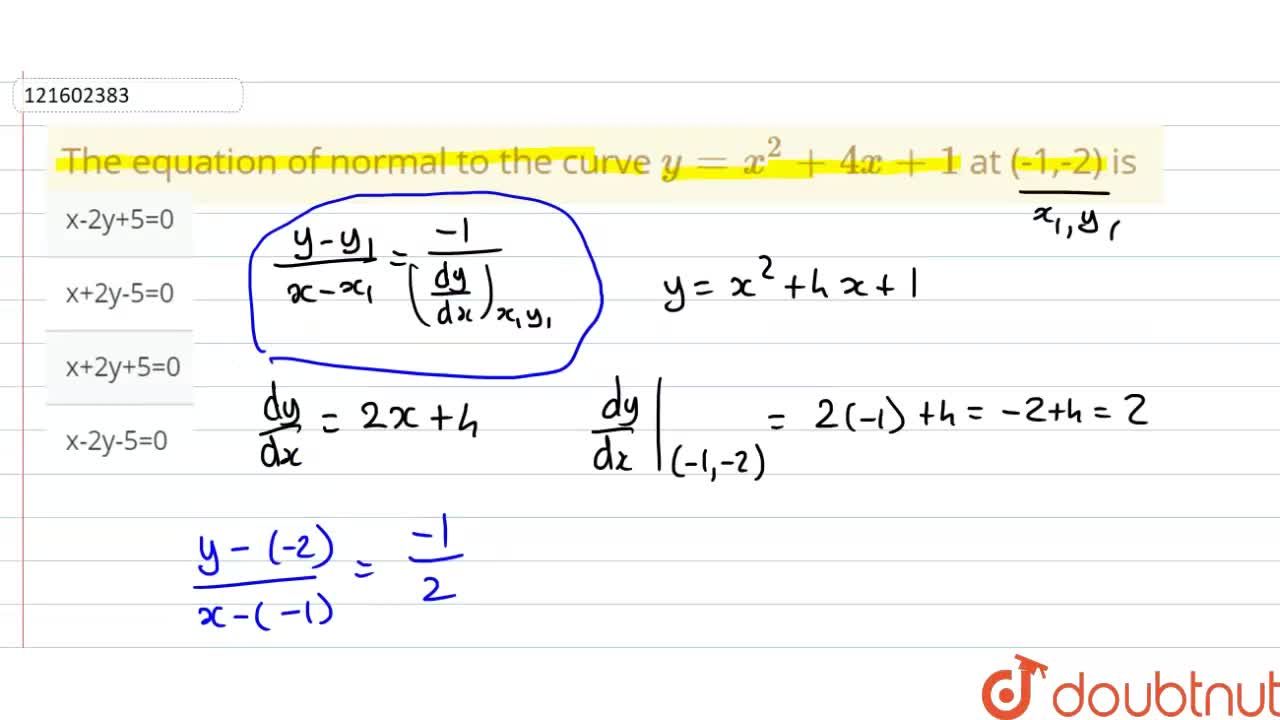 121602383
The equation of normal to the curve y = x² + 4x + 1 at (-1,-2) is
x₁, y₁
x-2y+5=0
x+2y-5=0
x+2y+5=0
x-2y-5=0
(y - y₁)/(x - x₁) = -1/(dy/dx)x₁y₁
y = x² + 4x + 1
dy/dx = 2x + 4
dy/dx |(-1,-2) = 2(-1) + 4 = -2 + 4 = 2
(y - (-2))/(x - (-1)) = -1/2
doubtnut